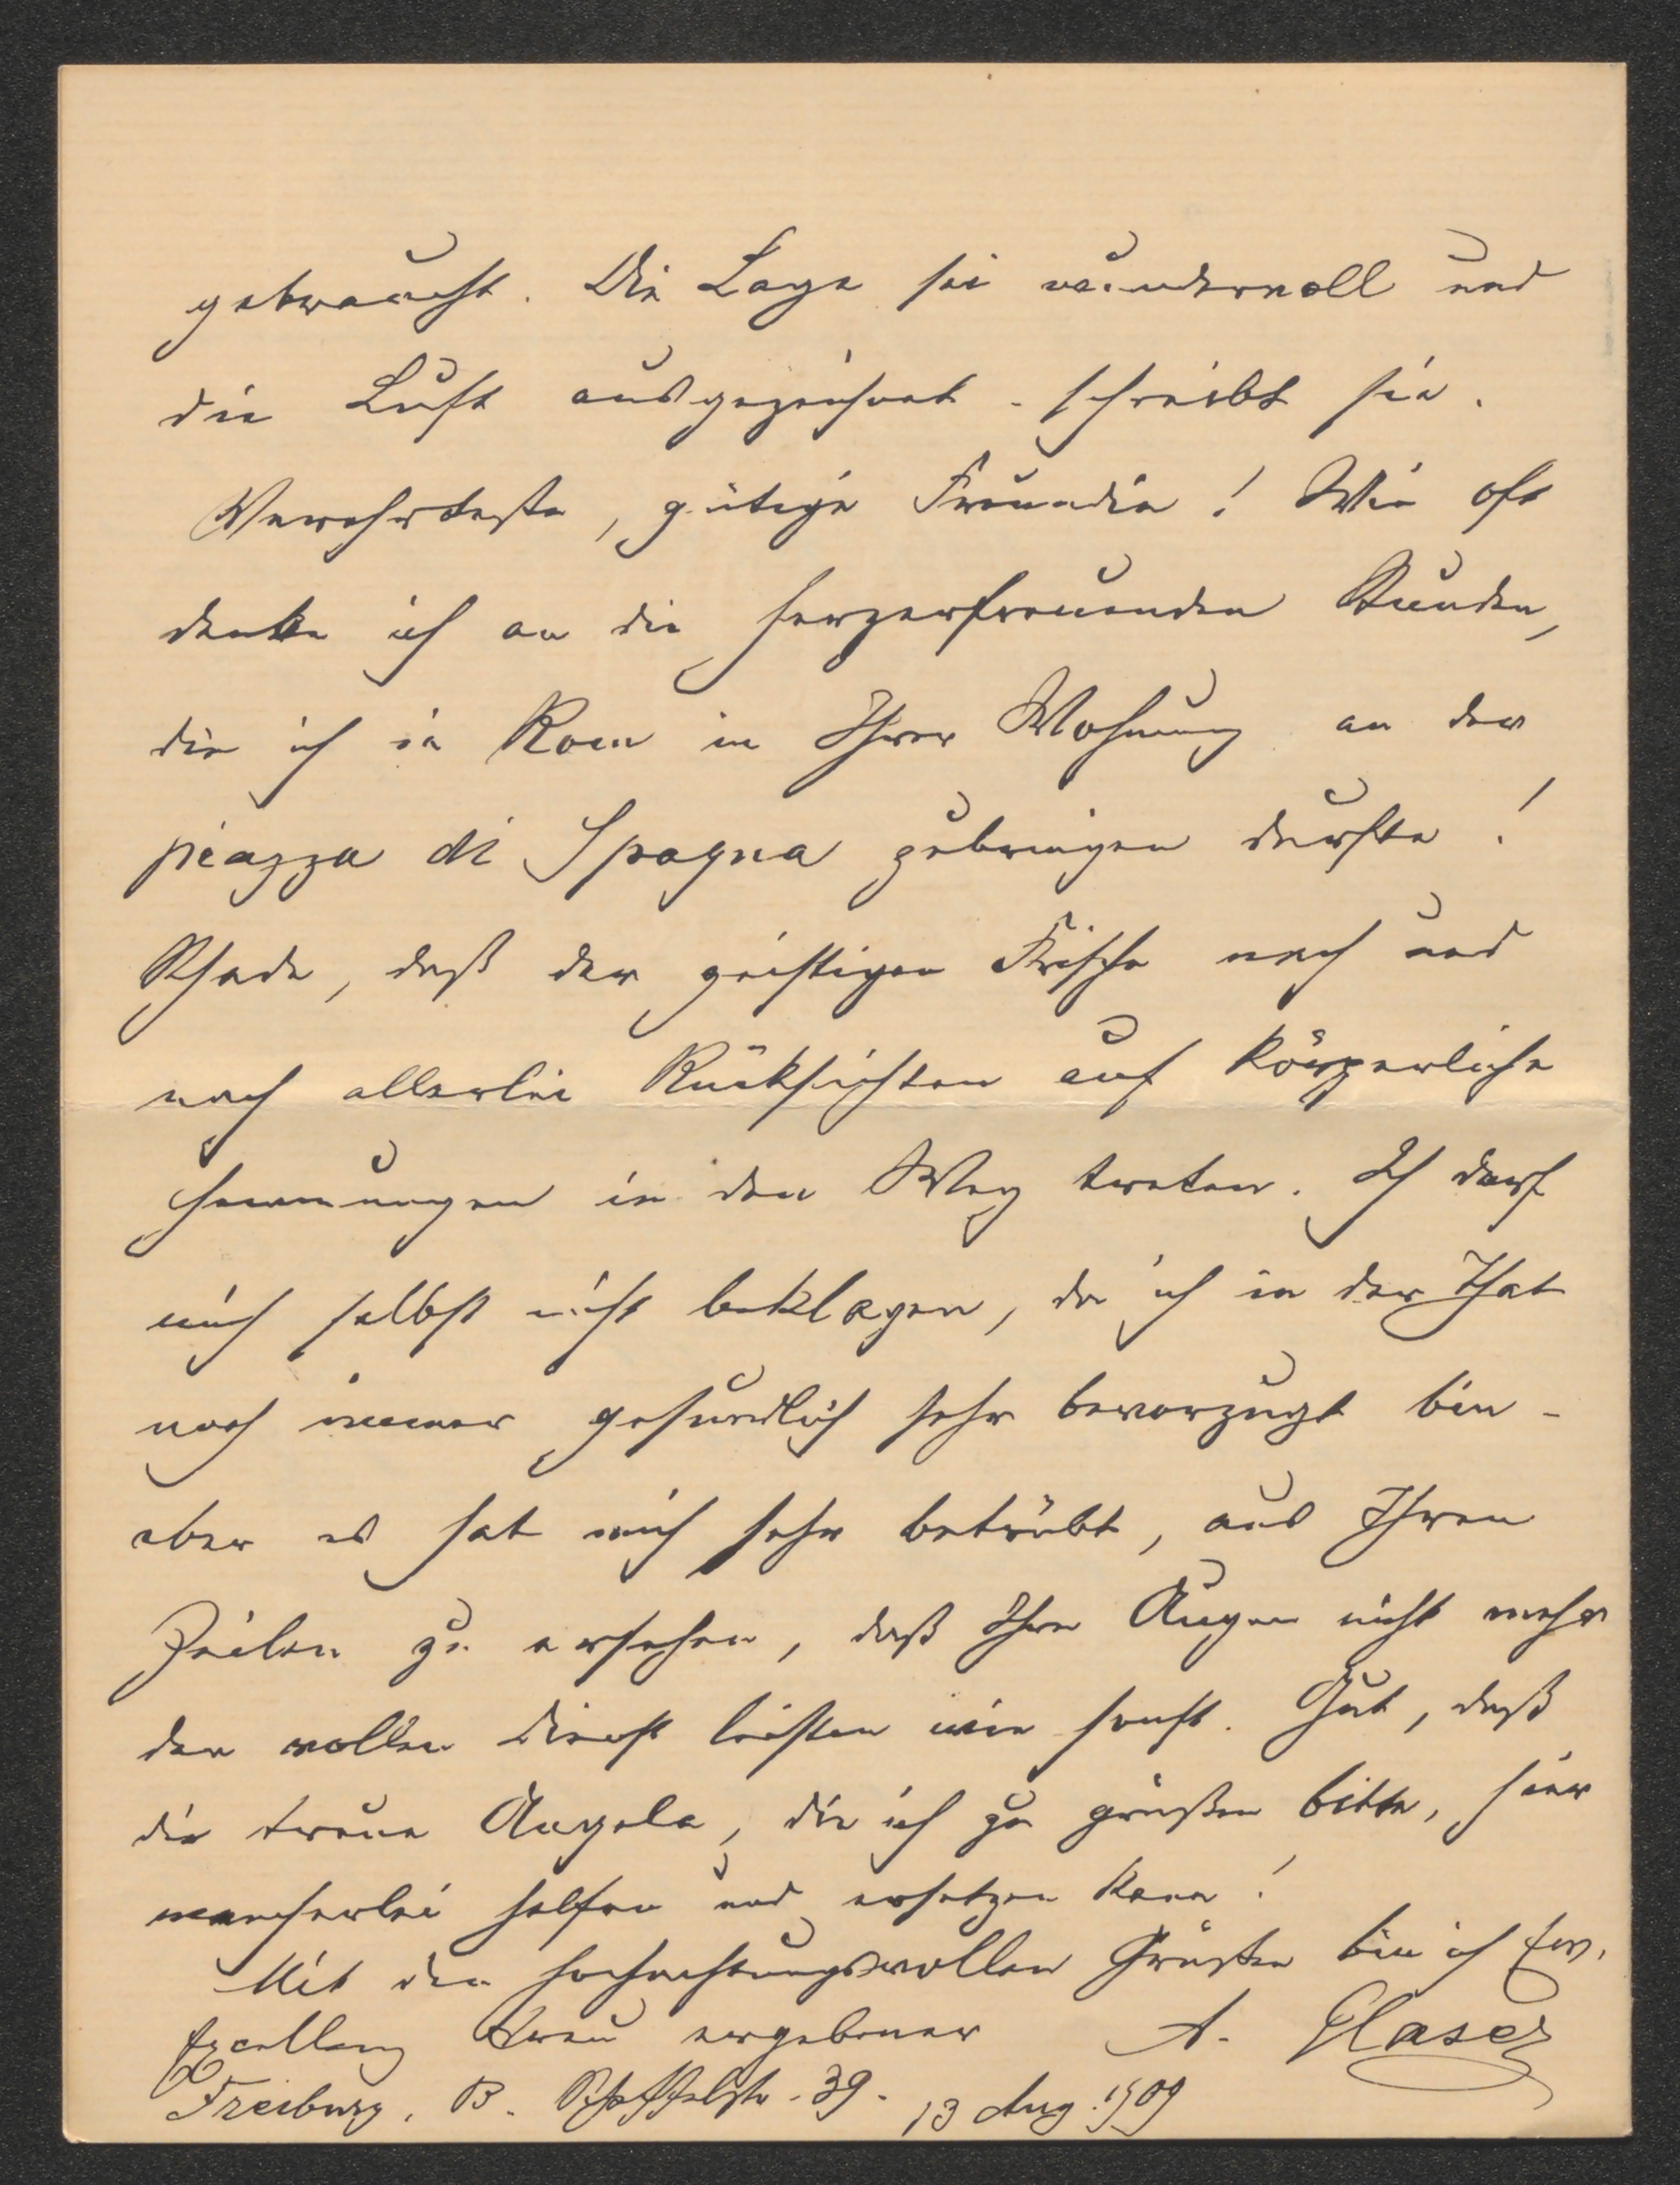 gebraucht. Die Lage sei wundervoll und
die Luft ausgezeichnet - schreibt sie.
Verehrteste, gütige Freundin! Wie oft
denke ich an die herzerfreuenden Stunden,
die ich in Rom in Ihrer Wohnung an der
piazza di Spagna zubringen durfte!
Schade, daß der geistigen Frische nach und
nach allerlei Rücksichten auf körperliche
Hemmungen in den Weg treten. Ich darf
mich selbst nicht beklagen, da ich in der That
noch immer gesundlich sehr bevorzugt bin -
aber es hat mich sehr betrübt, aus Ihren
Zeilen zu ersehen, daß Ihre Augen nicht mehr
den vollen Dienst leisten wie sonst. Gut, daß
die treue Angela, die ich zu grüßen bitte, hier
mancherlei helfen und ersetzen kann!
Mit den hochachtungsvollen Grüßen bin ich Ew.
Excellenz treu ergebener A. Glaser
Freiburg. B. Scheffelstr. 39. 13 Aug. 1909